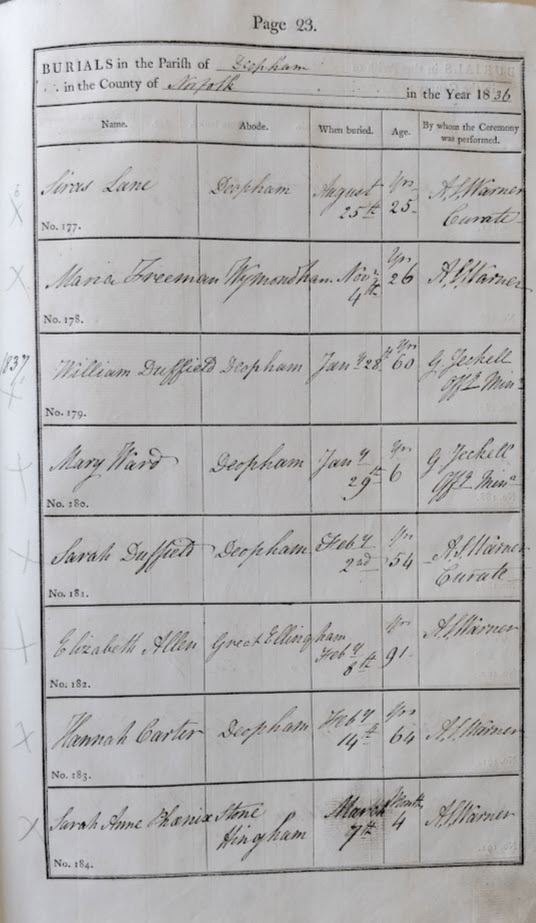 Page 23.
BURIALS in the Parish of Deopham
in the County of Norfolk in the Year 1836
Name. Abode. When buried. Age. By whom the Ceremony was performed.
Lane Deopham August 25th Yrs 25 A. S. Warner Curate
No. 177.
Maria Freeman Wymondham Novr 4th Yrs 26 A. S. Warner
No. 178.
1837
William Duffield Deopham Jany 28th Yrs 60 G Jeckell Offg Minr
No. 179.
Mary Ward Deopham Jany 29th Yrs 6 G Jeckell Offg Minr
No. 180.
Sarah Duffield Deopham Feby 2nd Yrs 54 A. S. Warner Curate
No. 181.
Elizabeth Allen Great Ellingham Feby 8th Yrs 91 A. S. Warner
No. 182.
Hannah Carter Deopham Feby 14th Yrs 64 A. S. Warner
No. 183.
Sarah Anne Phœnix Stone Hingham March 7th Months 4 A. S. Warner
No. 184.